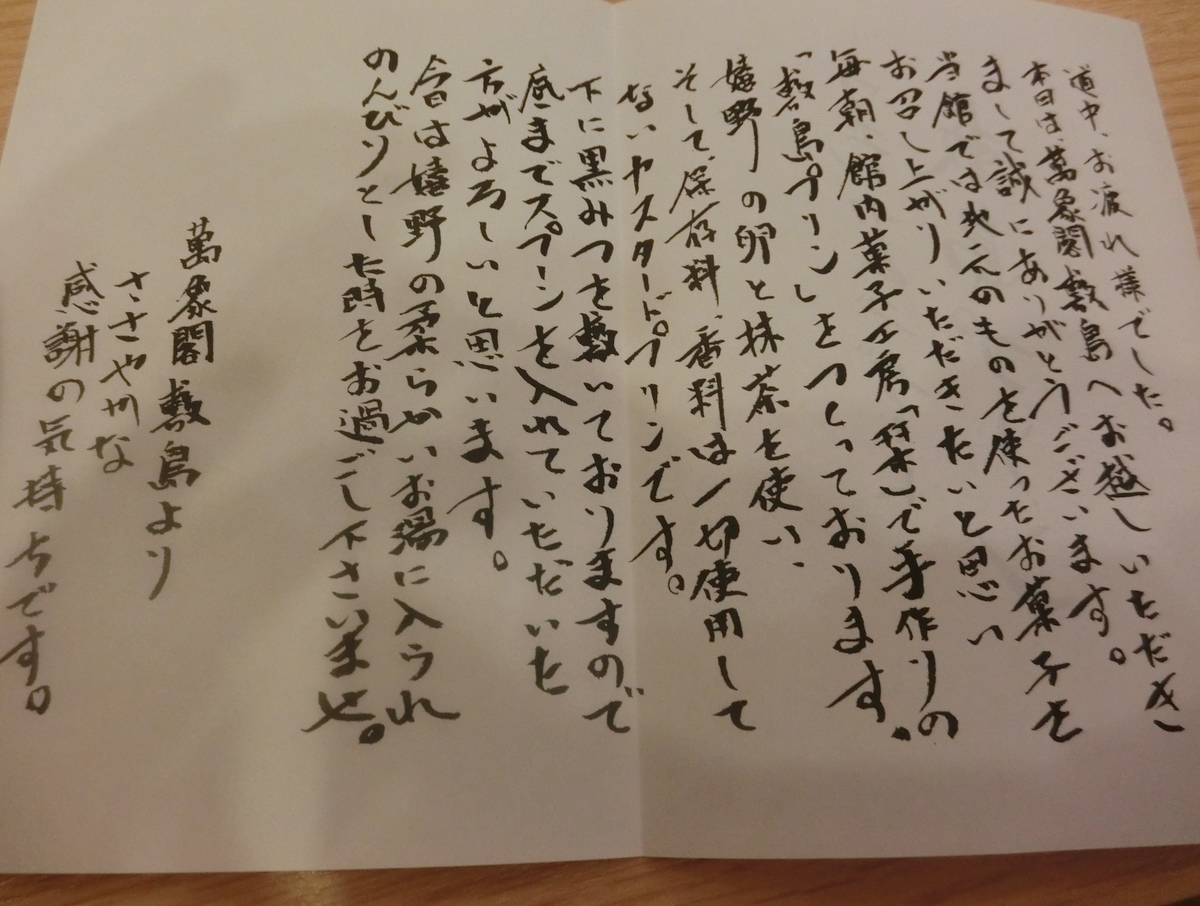 道中、お疲れ様でした。
本日は萬象閣敷島へお越しいただき
まして誠にありがとうございます。
当館では地元のものを使ったお菓子を
お召し上がりいただきたいと思い
毎朝、館内菓子工房「栞」で手作りの
「敷島プリン」をつくっております。
嬉野の卵と抹茶を使い、
そして保存料、香料は一切使用して
ないカスタードプリンです。
下に黒みつを敷いておりますので
底までスプーンを入れていただいた
方がよろしいと思います。
今日は嬉野の柔らかいお湯に入られ
のんびりとした時をお過ごし下さいませ。
萬象閣敷島より
ささやかな
感謝の気持ちです。